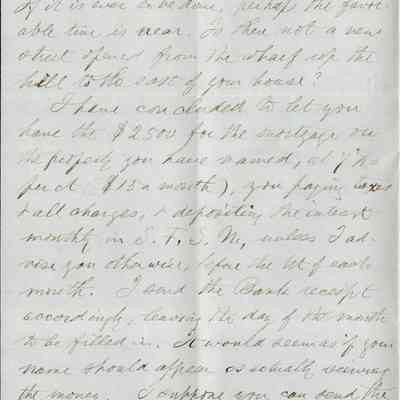 If it is ever to be done, perhaps the favor-
able time is near. Is there not a new
street opened from the wharf up the
hill to the east of your house?
I have concluded to let you
have the $2500 for the mortgage on
the property you have named, at 7
per ct ($15 a month), you paying taxes
& all charges, & depositing the interest
monthly in S. F. S. U., unless I ad-
vise you otherwise, before the 1st of each
month. I send the Bank receipt
accordingly, leaving the day of the month
to be filled in. It would seem as if your
name should appear as actually receiving
the money. I suppose you can send the